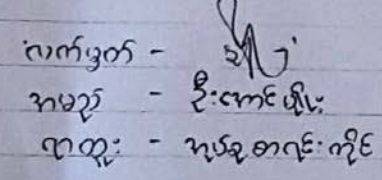 လက်မှတ် -
အမည် - ဦးအောင်
ရာထူး - အုပ်စုစာရင်းကိုင်